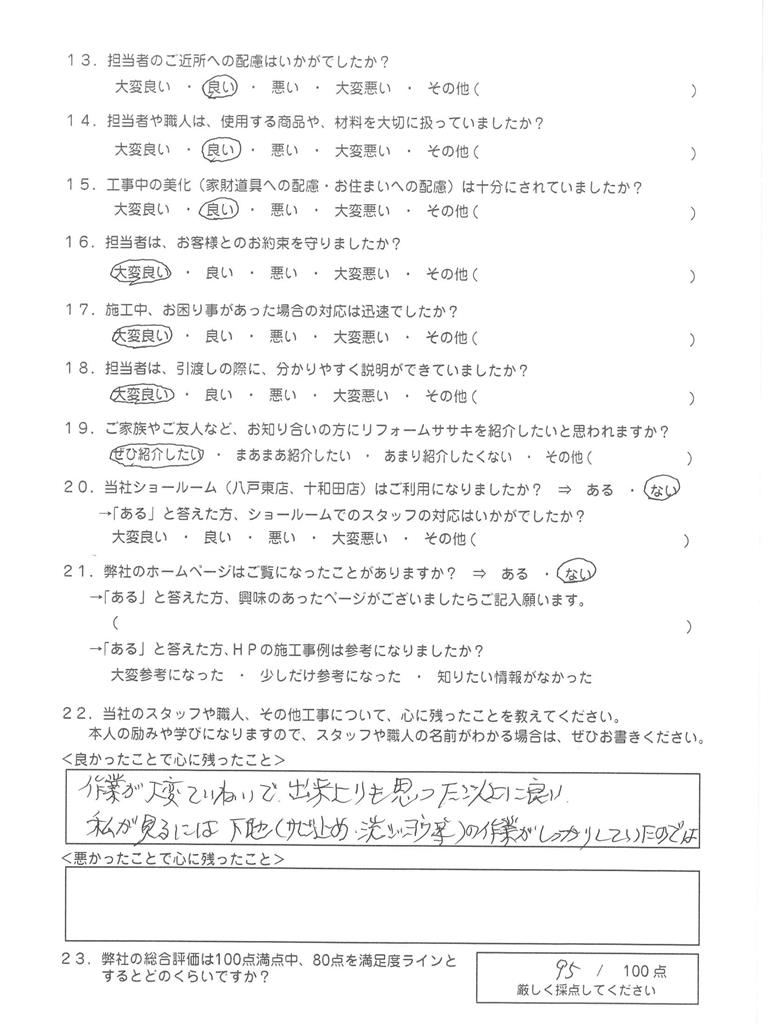 13. 担当者のご近所への配慮はいかがでしたか?
大変良い ・ 良い ・ 悪い ・ 大変悪い ・ その他( )
14. 担当者や職人は、使用する商品や、材料を大切に扱っていましたか?
大変良い ・ 良い ・ 悪い ・ 大変悪い ・ その他( )
15. 工事中の美化(家財道具への配慮・お住まいへの配慮)は十分にされていましたか?
大変良い ・ 良い ・ 悪い ・ 大変悪い ・ その他( )
16. 担当者は、お客様とのお約束を守りましたか?
大変良い ・ 良い ・ 悪い ・ 大変悪い ・ その他( )
17. 施工中、お困り事があった場合の対応は迅速でしたか?
大変良い ・ 良い ・ 悪い ・ 大変悪い ・ その他( )
18. 担当者は、引渡しの際に、分かりやすく説明ができていましたか?
大変良い ・ 良い ・ 悪い ・ 大変悪い ・ その他( )
19. ご家族やご友人など、お知り合いの方にリフォームササキを紹介したいと思われますか?
ぜひ紹介したい ・ まあまあ紹介したい ・ あまり紹介したくない ・ その他( )
20. 当社ショールーム(八戸東店、十和田店)はご利用になりましたか? ⇒ ある ・ ない
→「ある」と答えた方、ショールームでのスタッフの対応はいかがでしたか?
大変良い ・ 良い ・ 悪い ・ 大変悪い ・ その他( )
21. 弊社のホームページはご覧になったことがありますか? ⇒ ある ・ ない
→「ある」と答えた方、興味のあったページがございましたらご記入願います。
( )
→「ある」と答えた方、HPの施工事例は参考になりましたか?
大変参考になった ・ 少しだけ参考になった ・ 知りたい情報がなかった
22. 当社のスタッフや職人、その他工事について、心に残ったことを教えてください。
本人の励みや学びになりますので、スタッフや職人の名前がわかる場合は、ぜひお書きください。
<良かったことで心に残ったこと>
作業が大変ていねいで、出来上りも思った以上に良い
私が見るには下地(サビ止め・洗ジョウ等)の作業がしっかりしていたのでは
<悪かったことで心に残ったこと>
23. 弊社の総合評価は100点満点中、80点を満足度ラインと
するとどのくらいですか?
95 / 100点
厳しく採点してください